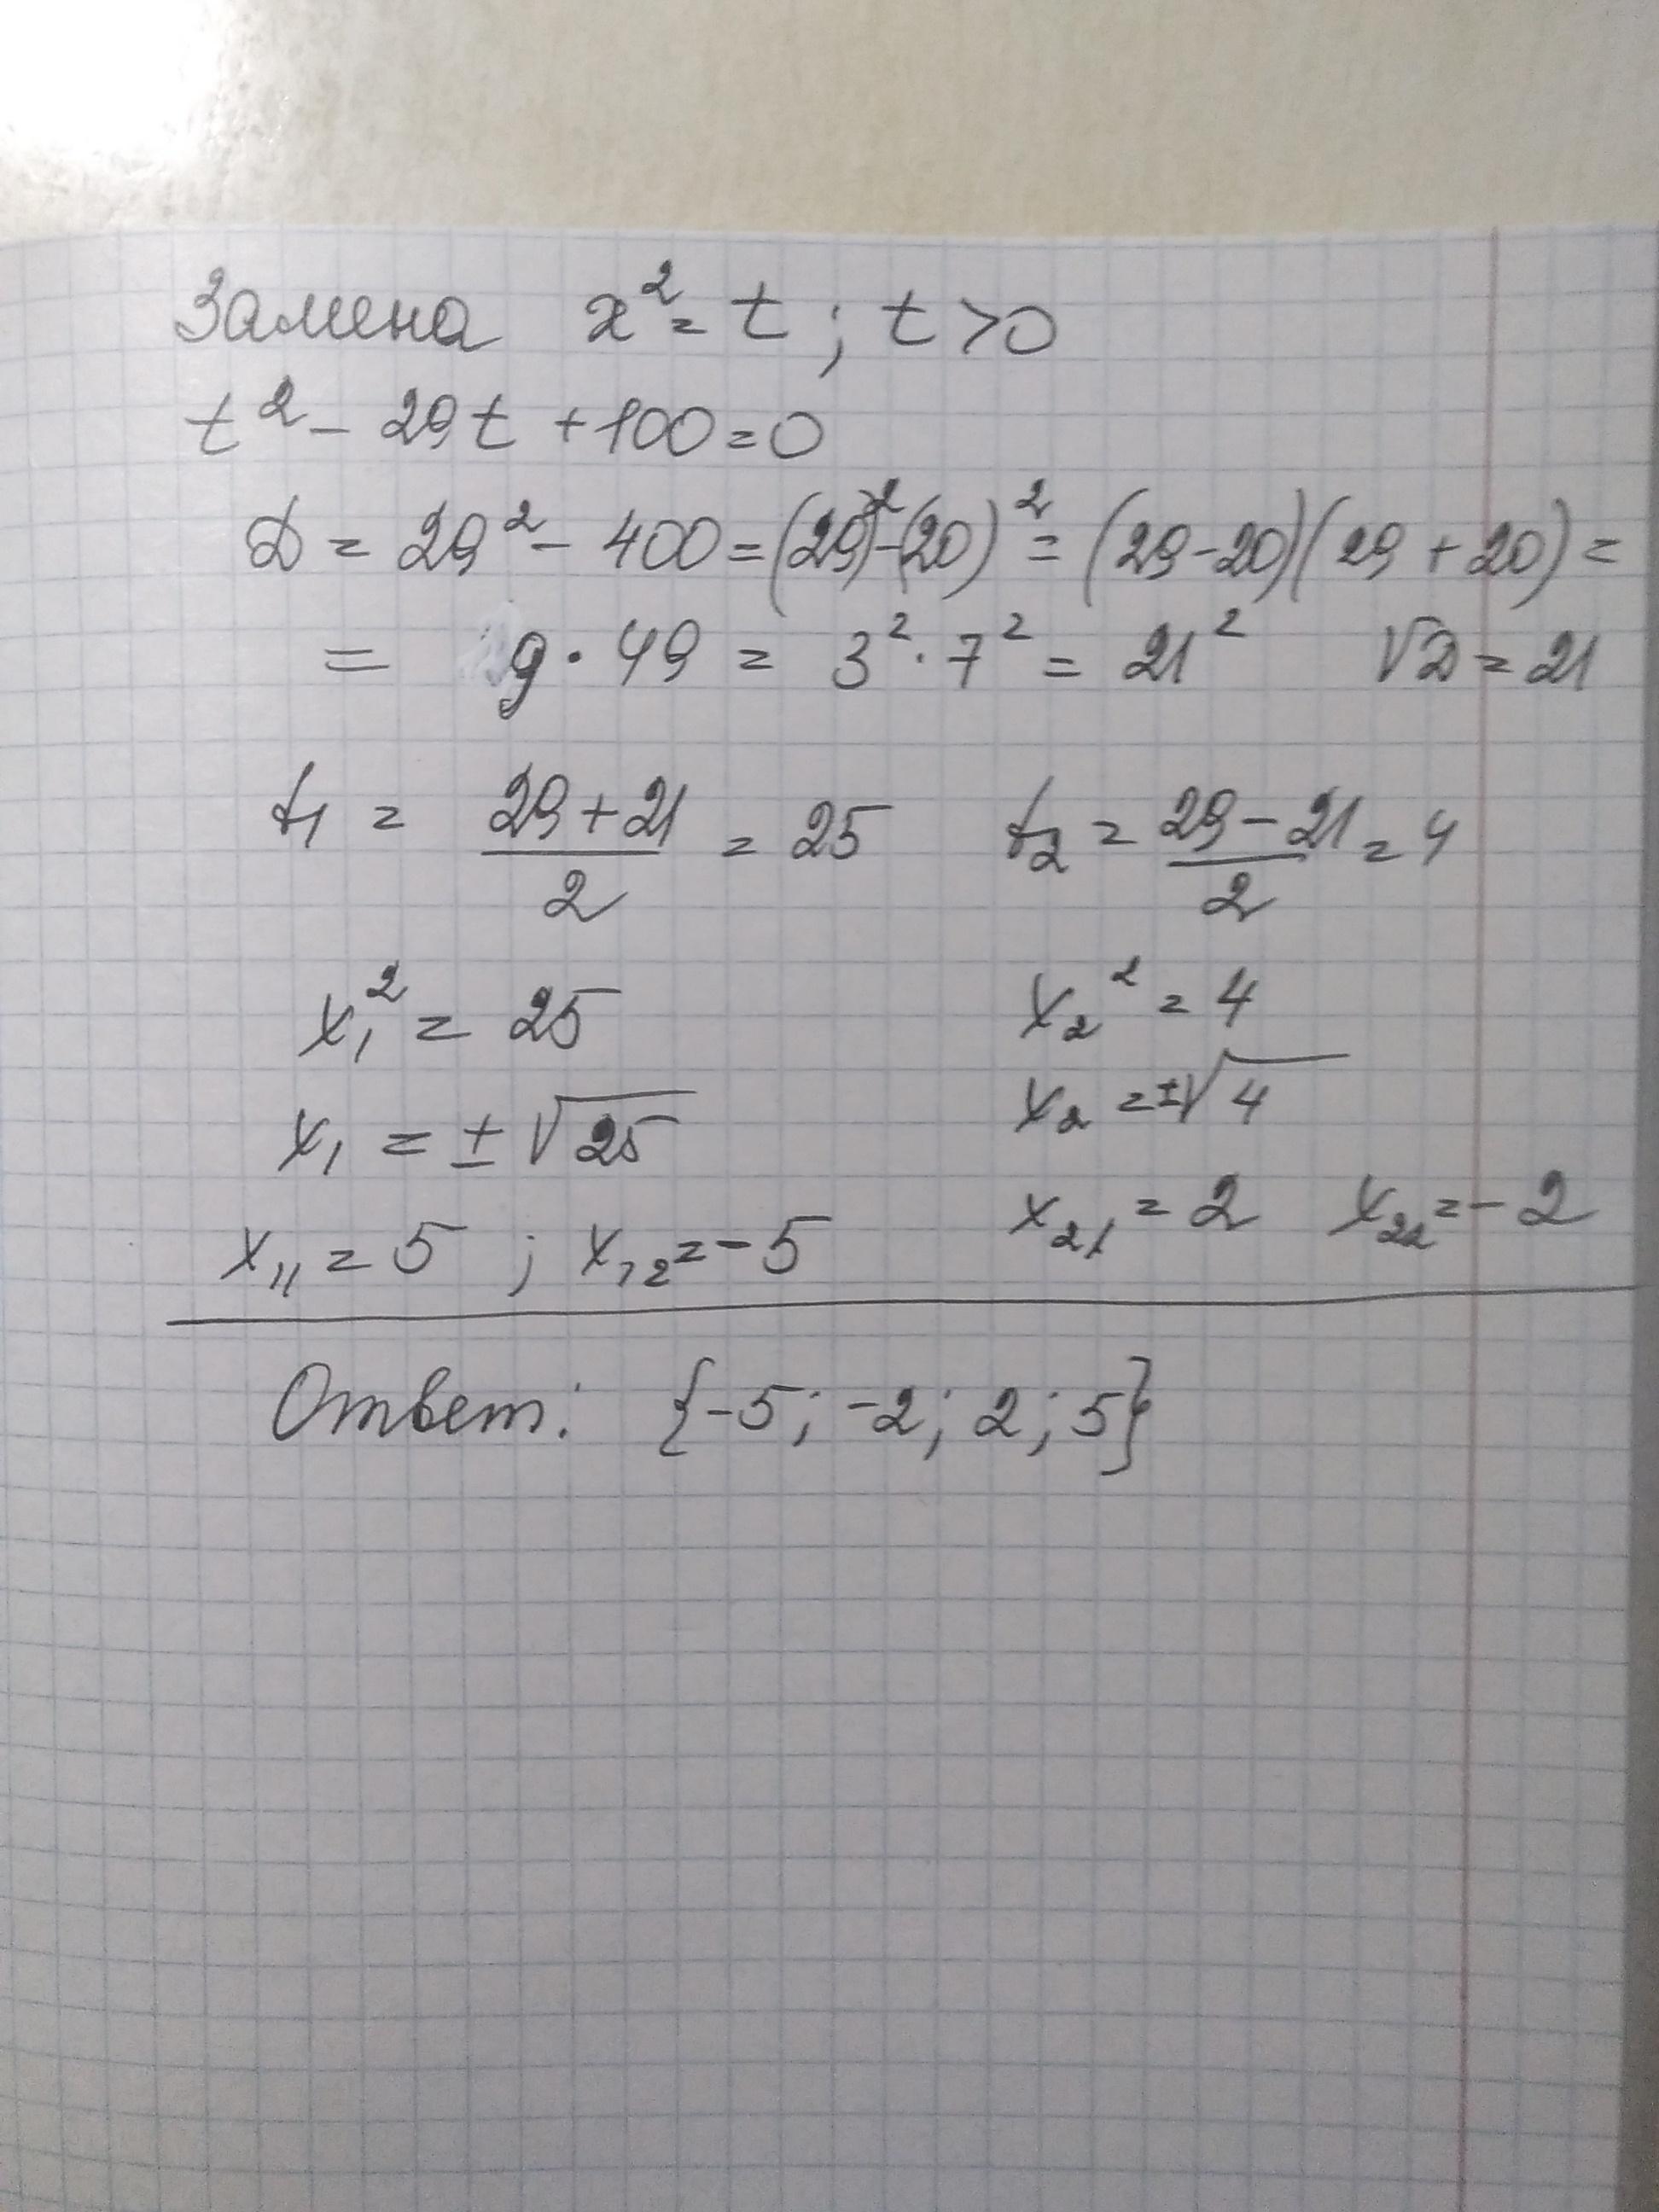 Замена x² = t ; t > 0
t² - 29t + 100 = 0
D = 29² - 400 = (29)² - (20)² = (29-20)(29+20) =
= 9 · 49 = 3² · 7² = 21² √D = 21
t₁ = (29+21)/2 = 25 t₂ = (29-21)/2 = 4
x₁² = 25 x₂² = 4
x₁ = ±√25 x₂ = ±√4
x₁₁ = 5 ; x₁₂ = -5 x₂₁ = 2 x₂₂ = -2
Ответ: {-5; -2; 2; 5}